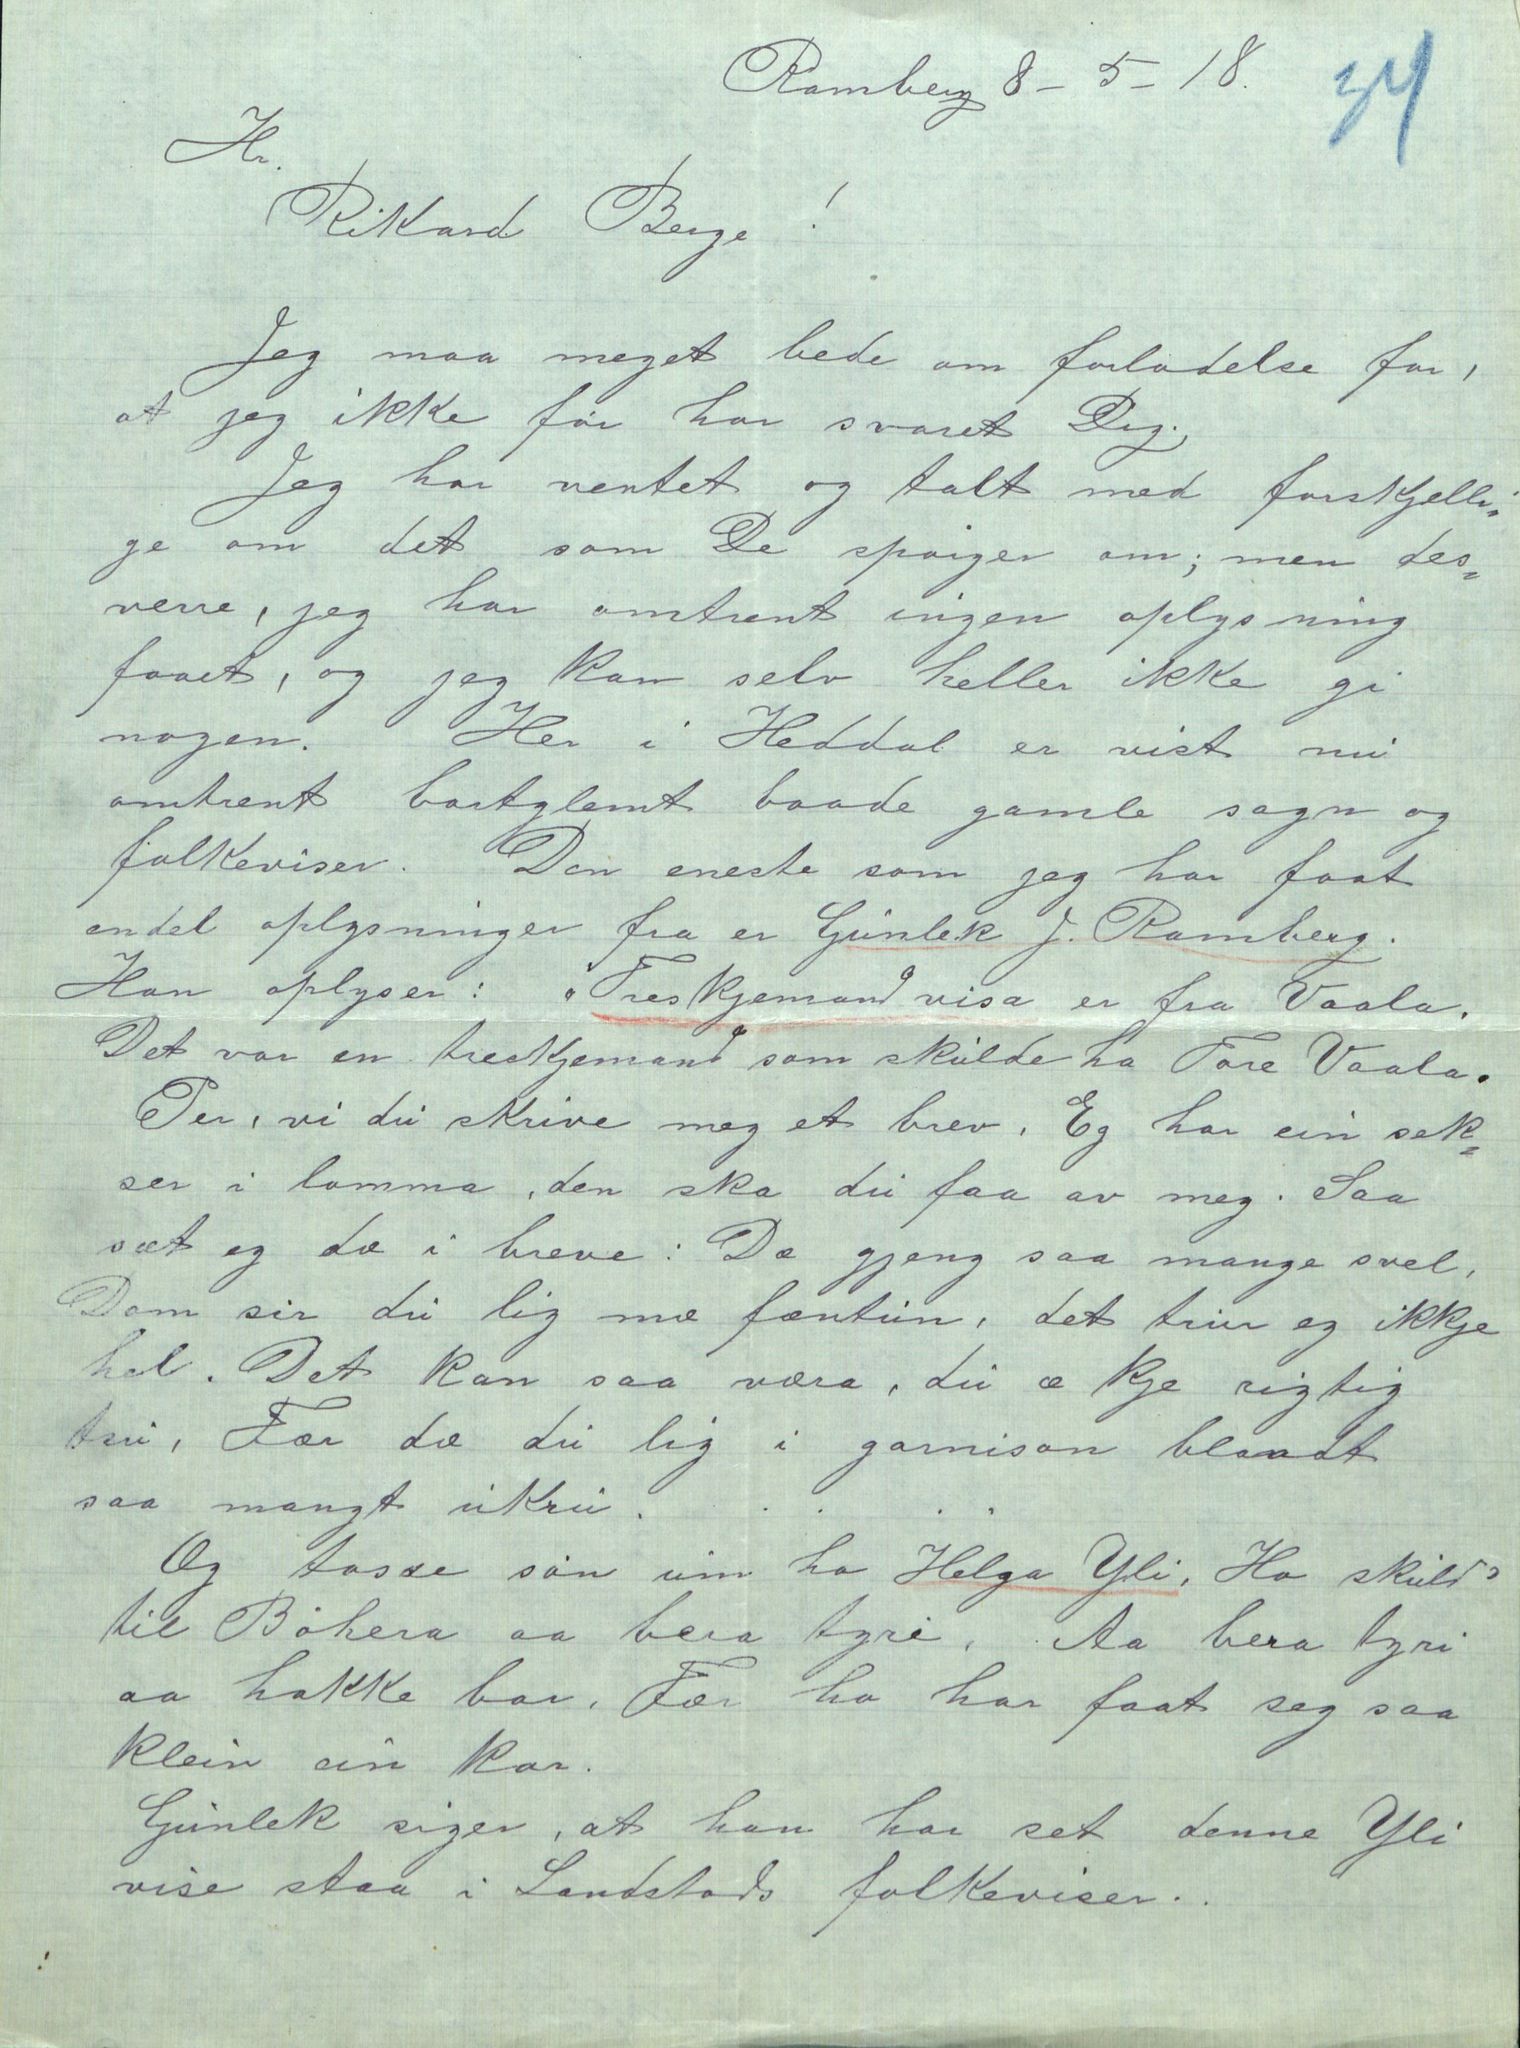 Ramberg 8-5-18.
34
Hr.
Rikard Berge!
Jeg maa meget bede om forladelse for,
at jeg ikke før har svaret Dig.
Jeg har ventet og talt med forskjelli-
ge om det som De spørger om; men des-
verre, jeg har omtrent ingen oplysning
faaet, og jeg kan selv heller ikke gi
nogen. Her i Heddal er vist nu
omtrent bortglemt baade gamle sagn og
folkeviser. Den eneste som jeg har faat
endel oplysninger fra er Gunlek J. Ramberg.
Han oplyser: Treskjemand visa er fra Vaala.
Det var en treskjemand som skulde ha Tore Vaala.
Per, vi du skrive meg et brev. Eg har ein sek-
ser i lomma, den ska du faa av meg. Saa
sæt eg dæ i breve: Dæ gjeng saa mange svel,
Dom sir du lig mæ fæntun, det trur eg ikkje
hel. Det kan saa væra, du æ kje rigtig
tru, Fær dæ du lig i garnison blandt
saa mangt ukru. . . .
Og tosse son um ho Helga Yli, Ho skuld
til Bøhera aa bera tyri. Aa bera tyri
aa hakke bar. Fær ho har faat seg saa
klein ein kar.
Gunlek siger, at han har set denne Yli
vise staa i Landstads folkeviser.